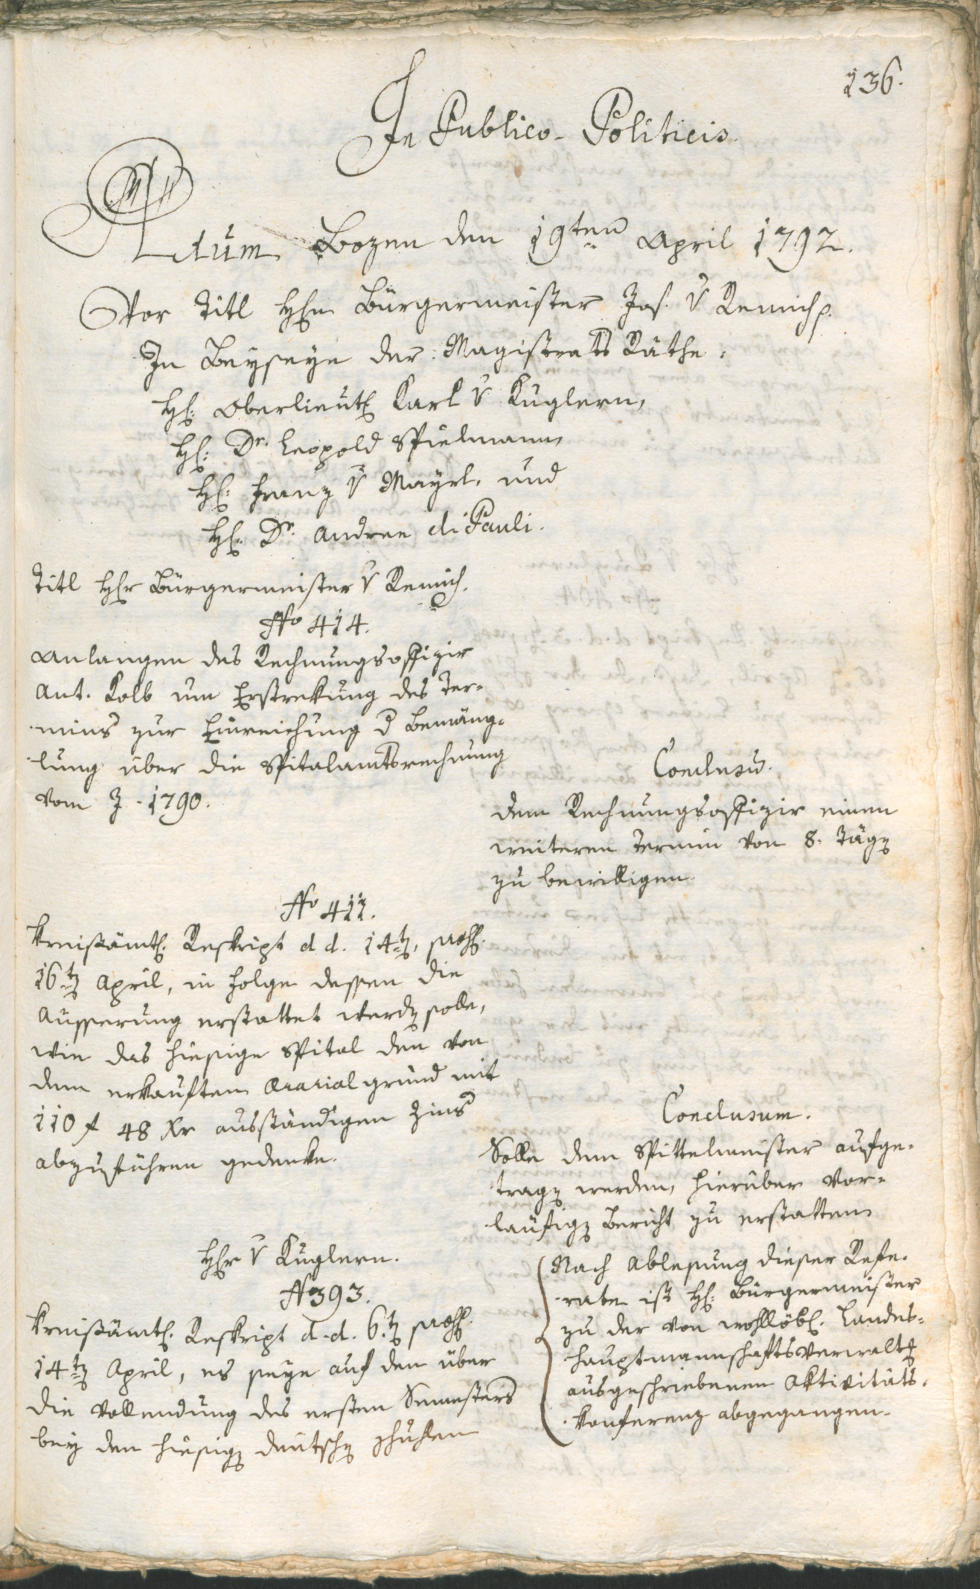 136.
In Publico-Politicis.
Actum Bozen den 19ten April 1792.
Vor Titl Hℏn Bürgermeister Jos. v Remich p.
In Beyseyn der Magistrats Räthe.
H: Oberlieut: Karl v Kuglern,
H: Dr. Leopold Spielmann,
H: Franz v Mayrl, und
H: Dr. Andree di Pauli.
Titl Hℏr Bürgermeister v Remich.
No 414.
Anlangen des Rechnungsoffizir
Ant. Kolb um Erstrekung des Ter-
mins zur Einreichung d Bemäng-
lung über die Spitalamtsrechnung
vom J. 1790.
Conclusū.
dem Rechnungsoffizir einen
weiteren Termin von 8. Täg
zu bewilligen.
No 411.
Kreisämtl. Reskript d d. 14t, 
16t April, in Folge dessen die
Äusserung erstattet werd solle,
wie das hiesige Spital den von
dem erkauften Ararialgrund mit
110 f 48 Xr ausständigen Zins
abzuführen gedenke.
Conclusum.
Solle dem Spittelmeister aufge-
trag werden, hierüber vor-
läufig Bericht zu erstatten
Hℏr v Kuglern.
No 393.
Kreisämtl. Reskript d. d. 6.t
14t April, es seye auf den über
die Vollendung des ersten Semesters
bey den hiesig deutsch Schulen
Nach Ablesung dieser Refe-
raten ist H: Bürgermeister
zu der von wohllöbl. Landes-
hauptmannschaftsverwalt
ausgeschriebenen Aktivitäts-
Konferenz abgegangen.